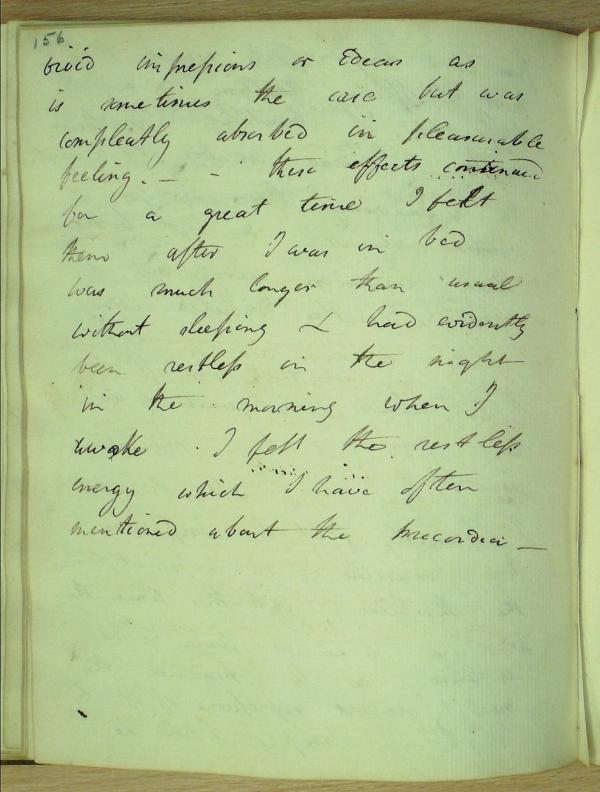 156
vivid impressions or Ideas as
is sometimes the case but was
compleatly absorbed in pleasurable
feeling. — - these effects continued
for a great time I felt
them after I was in bed
was much longer than usual
without sleeping & had evidently
been restless in the night
in the morning when I
awoke I felt the restless
energy which I have often
mentioned about the precordia —